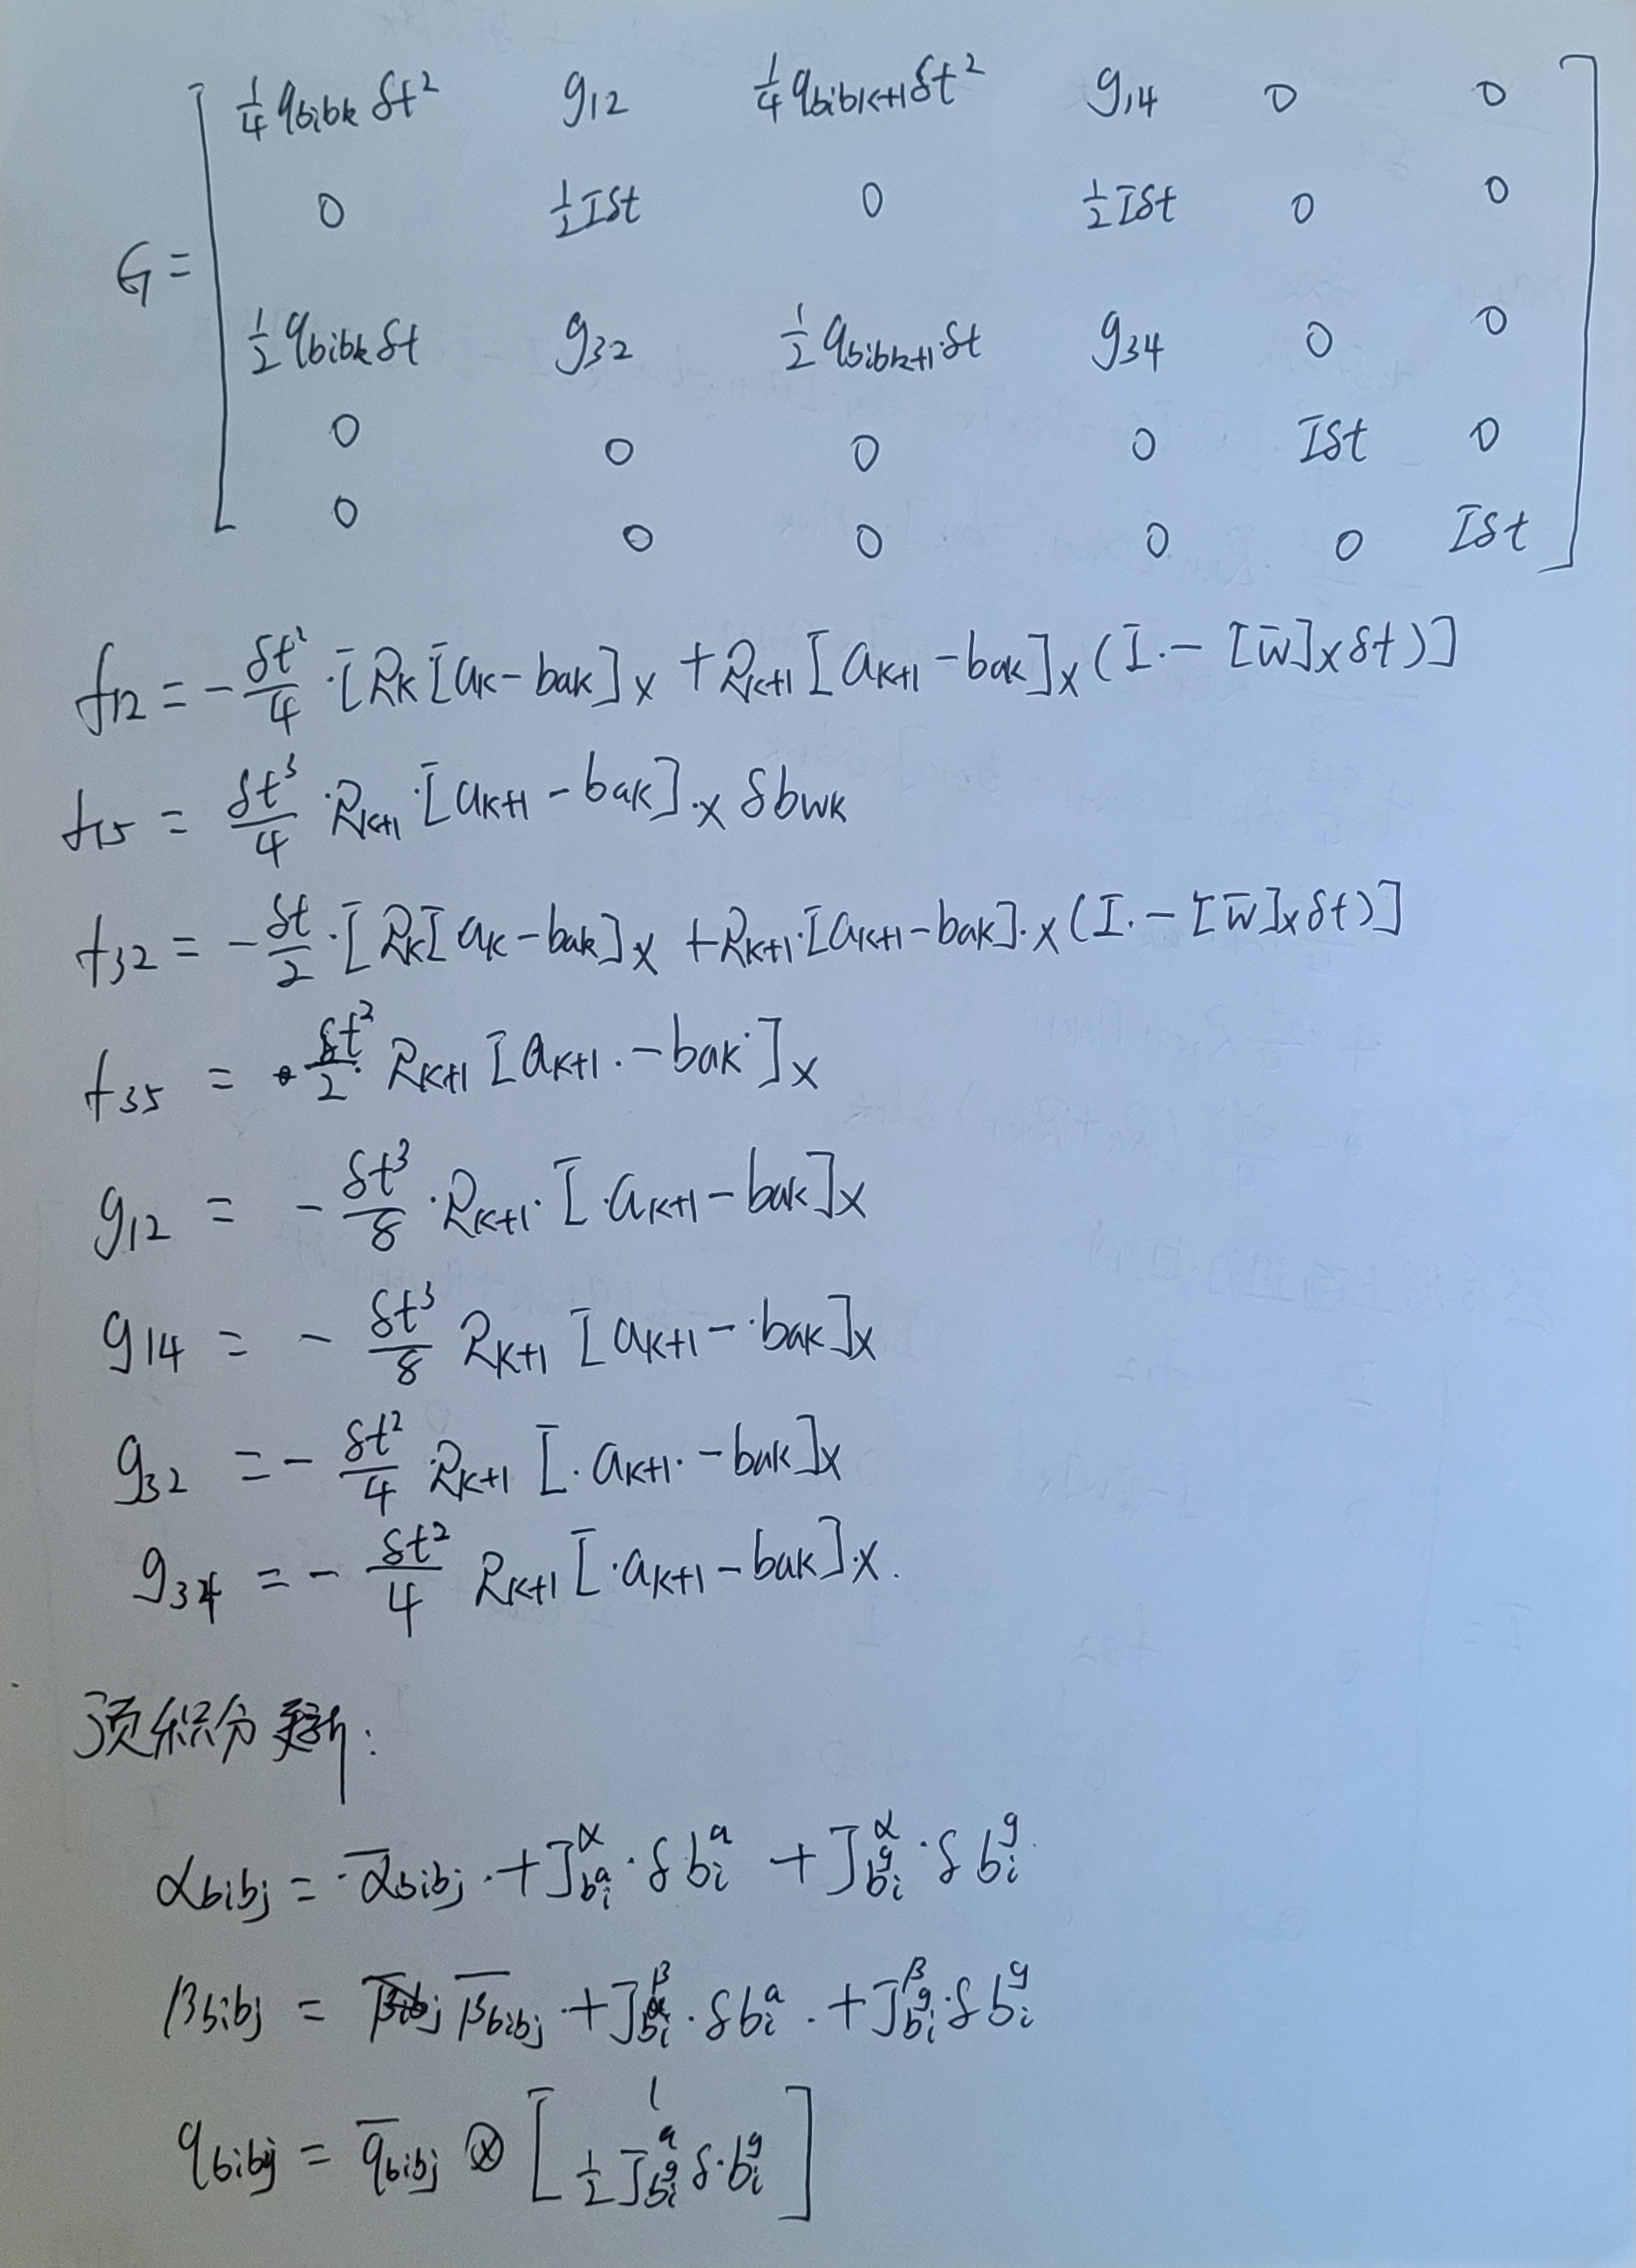 G = [ 1/4 q_bibk δt² g₁₂ 1/4 q_bibk+1 δt² g₁₄ 0 0
0 1/2 Iδt 0 1/2 Iδt 0 0
1/2 q_bibk δt g₃₂ 1/2 q_bibk+1·δt g₃₄ 0 0
0 0 0 0 Iδt 0
0 0 0 0 0 Iδt ]
f₁₂ = -δt²/4·[R_k[a_k-b_ak]_× + R_k+1[a_k+1-b_ak]_×(I·-[w̄]_×δt)]
f₁₅ = δt³/4·R_k+1·[a_k+1-b_ak]·_× δb_wk
f₃₂ = -δt/2·[R_k[a_k-b_ak]_× + R_k+1·[a_k+1-b_ak]·_×(I·-[w̄]_×δt)]
f₃₅ = δt²/2 R_k+1[a_k+1·-b_ak]_×
g₁₂ = -δt³/8·R_k+1·[·a_k+1-b_ak]_×
g₁₄ = -δt³/8 R_k+1[a_k+1-·b_ak]_×
g₃₂ = -δt²/4 R_k+1[·a_k+1·-b_ak]_×
g₃₄ = -δt²/4 R_k+1[·a_k+1-b_ak]·_×.
预积分更新:
α_bibj = ᾱ_bibj·+J^α_{b_i^a}·δb_i^a + J^α_{b_i^g}·δb_i^g
β_bibj = β̄_bibj·+J^β_{b_i^a}·δb_i^a·+J^β_{b_i^g}·δb_i^g
q_bibj = q̄_bibj ⊗ [ 1
1/2 J^q_{b_i^g} δ·b_i^g ]